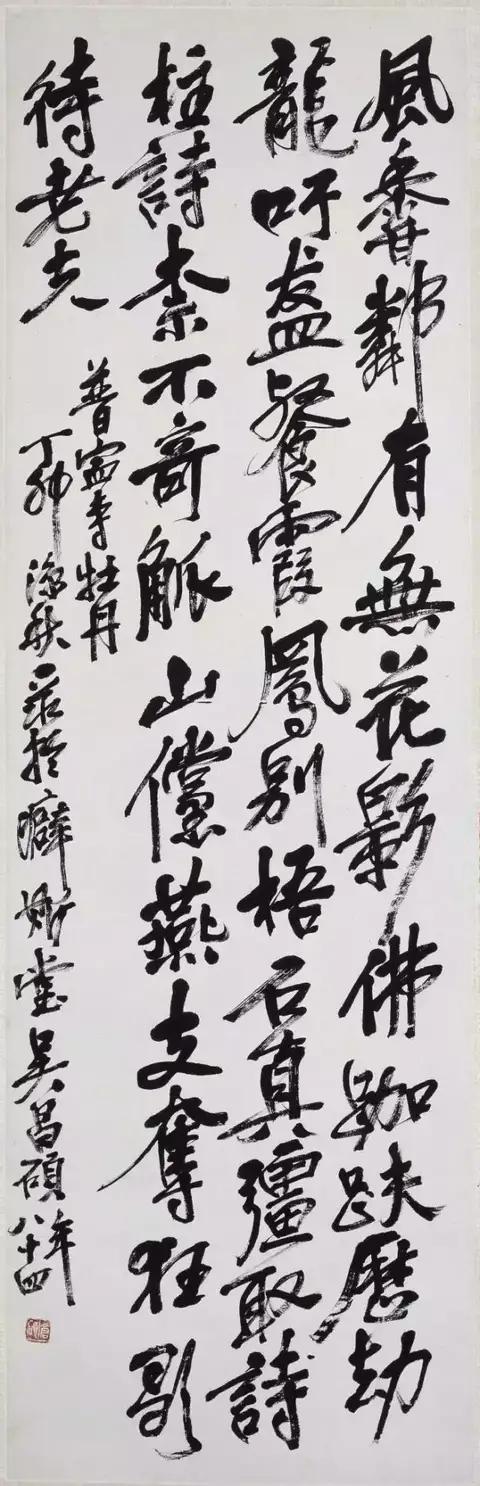 風香鄰有無花影佛跏趺歷劫
龍吁盋餐霞鳳別梧石真彊取詩
柱詩柰不奇觚山儻燕支奪狂歌
待老夫
普寧寺牡丹
丁卯涼秋於癖斯堂吳昌碩年
八十四